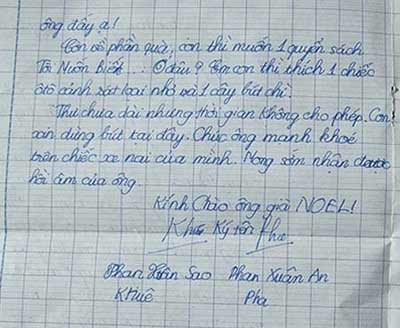 ông đấy ạ!
Còn về phần quà, con thì muốn 1 quyển sách
Tôi Muốn Biết... Ở đâu? Em con thì thích 1 chiếc
ôtô cảnh sát loại nhỏ và 1 cây bút chì.
Thư chưa dài nhưng thời gian không cho phép. Con
xin dừng bút tại đây. Chúc ông mạnh khoẻ
trên chiếc xe nai của mình. Mong sớm nhận được
hồi âm của ông.
Kính Chào ông già NOEL!
Khuê Ký tên Pha
Phan Xuân Sao Phan Xuân An
Khuê Pha